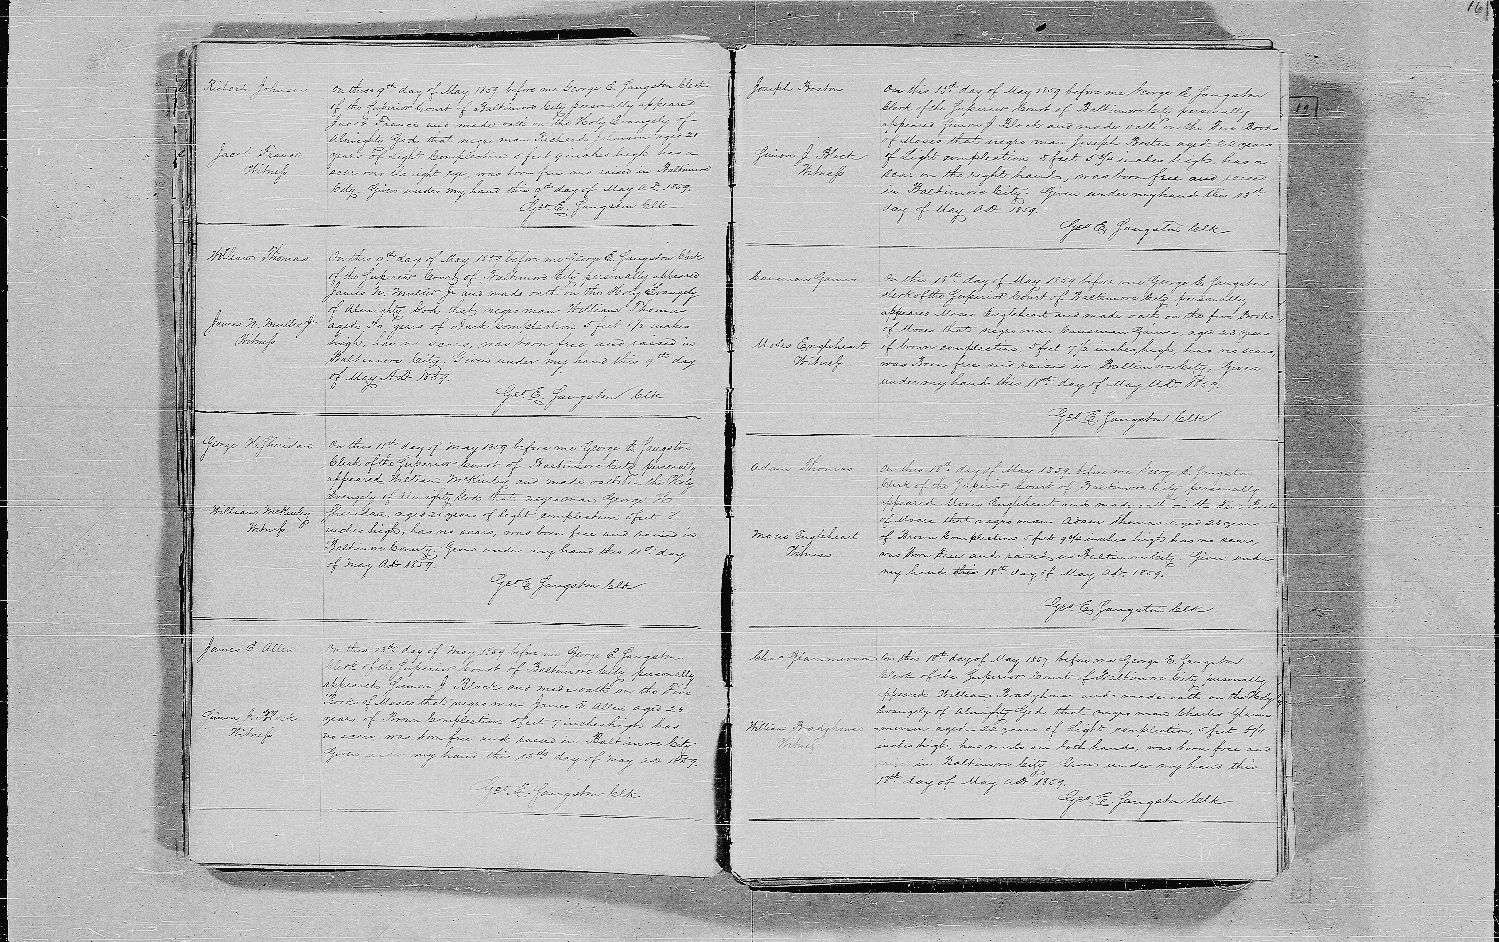 161
Richard Johnson
On this 9th day of May 1859 before me George E. Sangston Clerk
of the Superior Court of Baltimore City personally appeared
Jacob France and made oath on the Holy Evangely of
Almighty God that negro man Richard Johnson aged 21
years of Light Complection 5 feet inches high has a
scar over the right eye, was born free and raised in Baltimore
City. Given under my hand this 9th day of May A.D. 1859.
Geo E. Sangston Clk
Jacob France
Witness
William Thomas
On this 9th day of May 1859 before me George E. Sangston Clerk
of the Superior Court of Baltimore City personally appeared
James W. Jr and made oath on the Holy Evangely
of Almighty God that negro man William Thomas
aged years of Black Complection 5 feet inches
high, has no scars, was born free and raised in
Baltimore City. Given under my hand this 9th day
of May A.D. 1859.
Geo E. Sangston Clk
James W. Jr
Witness
George W. Sheridan
On this 11th day of May 1859 before me George E. Sangston
Clerk of the Superior Court of Baltimore City personally
appeared William McKinley and made oath on the Holy
Evangely of Almighty God that negro man George W.
Sheridan aged 21 years of light complection 5 feet 8
inches high, has no scars, was born free and raised in
Baltimore County. Given under my hand this 11th day
of May A.D. 1859.
Geo E. Sangston Clk
William McKinley
Witness
James F. Allen
On this 13th day of May 1859 before me George E. Sangston
Clerk of the Superior Court of Baltimore City personally
appeared Simon J. Block and made oath on the Five
Book of Moses that negro man James F. Allen aged 24
years of Brown Complection 5 feet 7 inches high has
no scars, was born free and raised in Baltimore City.
Given under my hand this 13th day of May A.D. 1859.
Geo. E. Sangston Clk
Simon J. Block
Witness
Joseph Boston
On this 13th day of May 1859 before me George E. Sangston
Clerk of the Superior Court of Baltimore City personally
appeared Simon J. Block and made oath on the Five Book
of Moses that negro man Joseph Boston aged 22 years
of Light complection 5 feet 5 1/2 inches high, has a
scar on the right hand, was born free and raised
in Baltimore City. Given under my hand this 13th
day of May A.D. 1859.
Geo E. Sangston Clk
Simon J. Block
Witness
On this 18th day of May 1859 before me George E. Sangston
Clerk of the Superior Court of Baltimore City personally
appeared Moses Engleheart and made oath on the five Books
of Moses that negro man aged 23 years
of brown complection 5 feet 7 1/2 inches high, has no scars,
was Born free and raised in Baltimore City. Given
under my hand this 18th day of May A.D. 1859.
Geo E. Sangston Clk
Moses Engleheart
Witness
Adam Thomas
On this 18th day of May 1859 before me George E. Sangston
Clerk of the Superior Court of Baltimore City personally
appeared Moses Engleheart and made oath on the Five Books
of Moses that negro man Adam Thomas aged 23 years
of Brown Complection 5 feet 9 1/2 inches high has no scars,
was born free and raised in Baltimore City. Given under
my hand this 18th day of May A.D. 1859.
Geo E. Sangston Clk
Moses Engleheart
Witness
On this 18th day of May 1859 before me George E. Sangston
Clerk of the Superior Court of Baltimore City, personally
appeared William and made oath on the Holy
Evangely of Almighty God that negro man Charles
aged 22 years of Light complection, 5 feet
inches high, has on both hands, was born free and
in Baltimore City. Given under my hand this
18th day of May A.D. 1859.
Geo. E. Sangston Clk
William
Witness